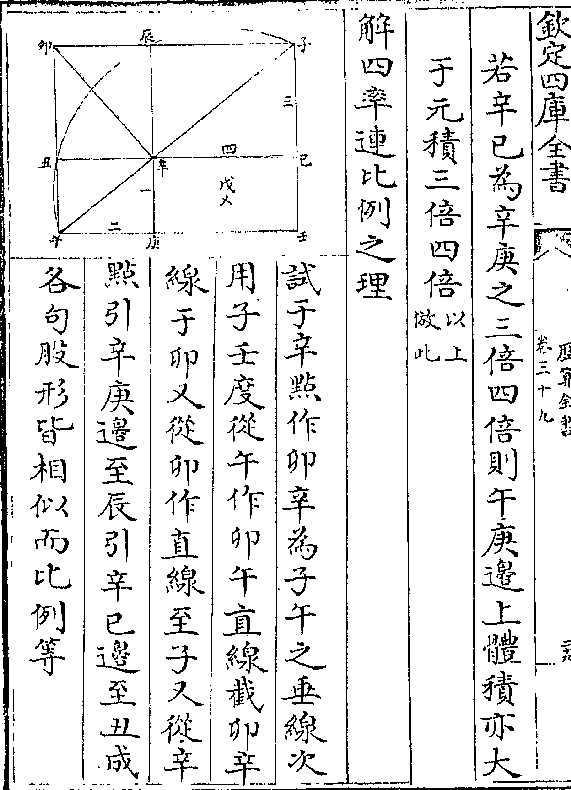 欽定四庫全書
卷三十九
若辛已為辛庚之三倍四倍則午庚邊上體積亦大
于元積三倍四倍以上倣此
解四率連比例之理
試于辛點作卯辛為子午之垂線次
用子壬度從午作卯午直線截卯辛
線于卯又從卯作直線至子又從辛
點引辛庚邊至辰引辛已邊至丑成
各句股形皆相似而比例等
卯
辰
子
三
丑
辛
四
已
戊
一
午
二
庚
壬